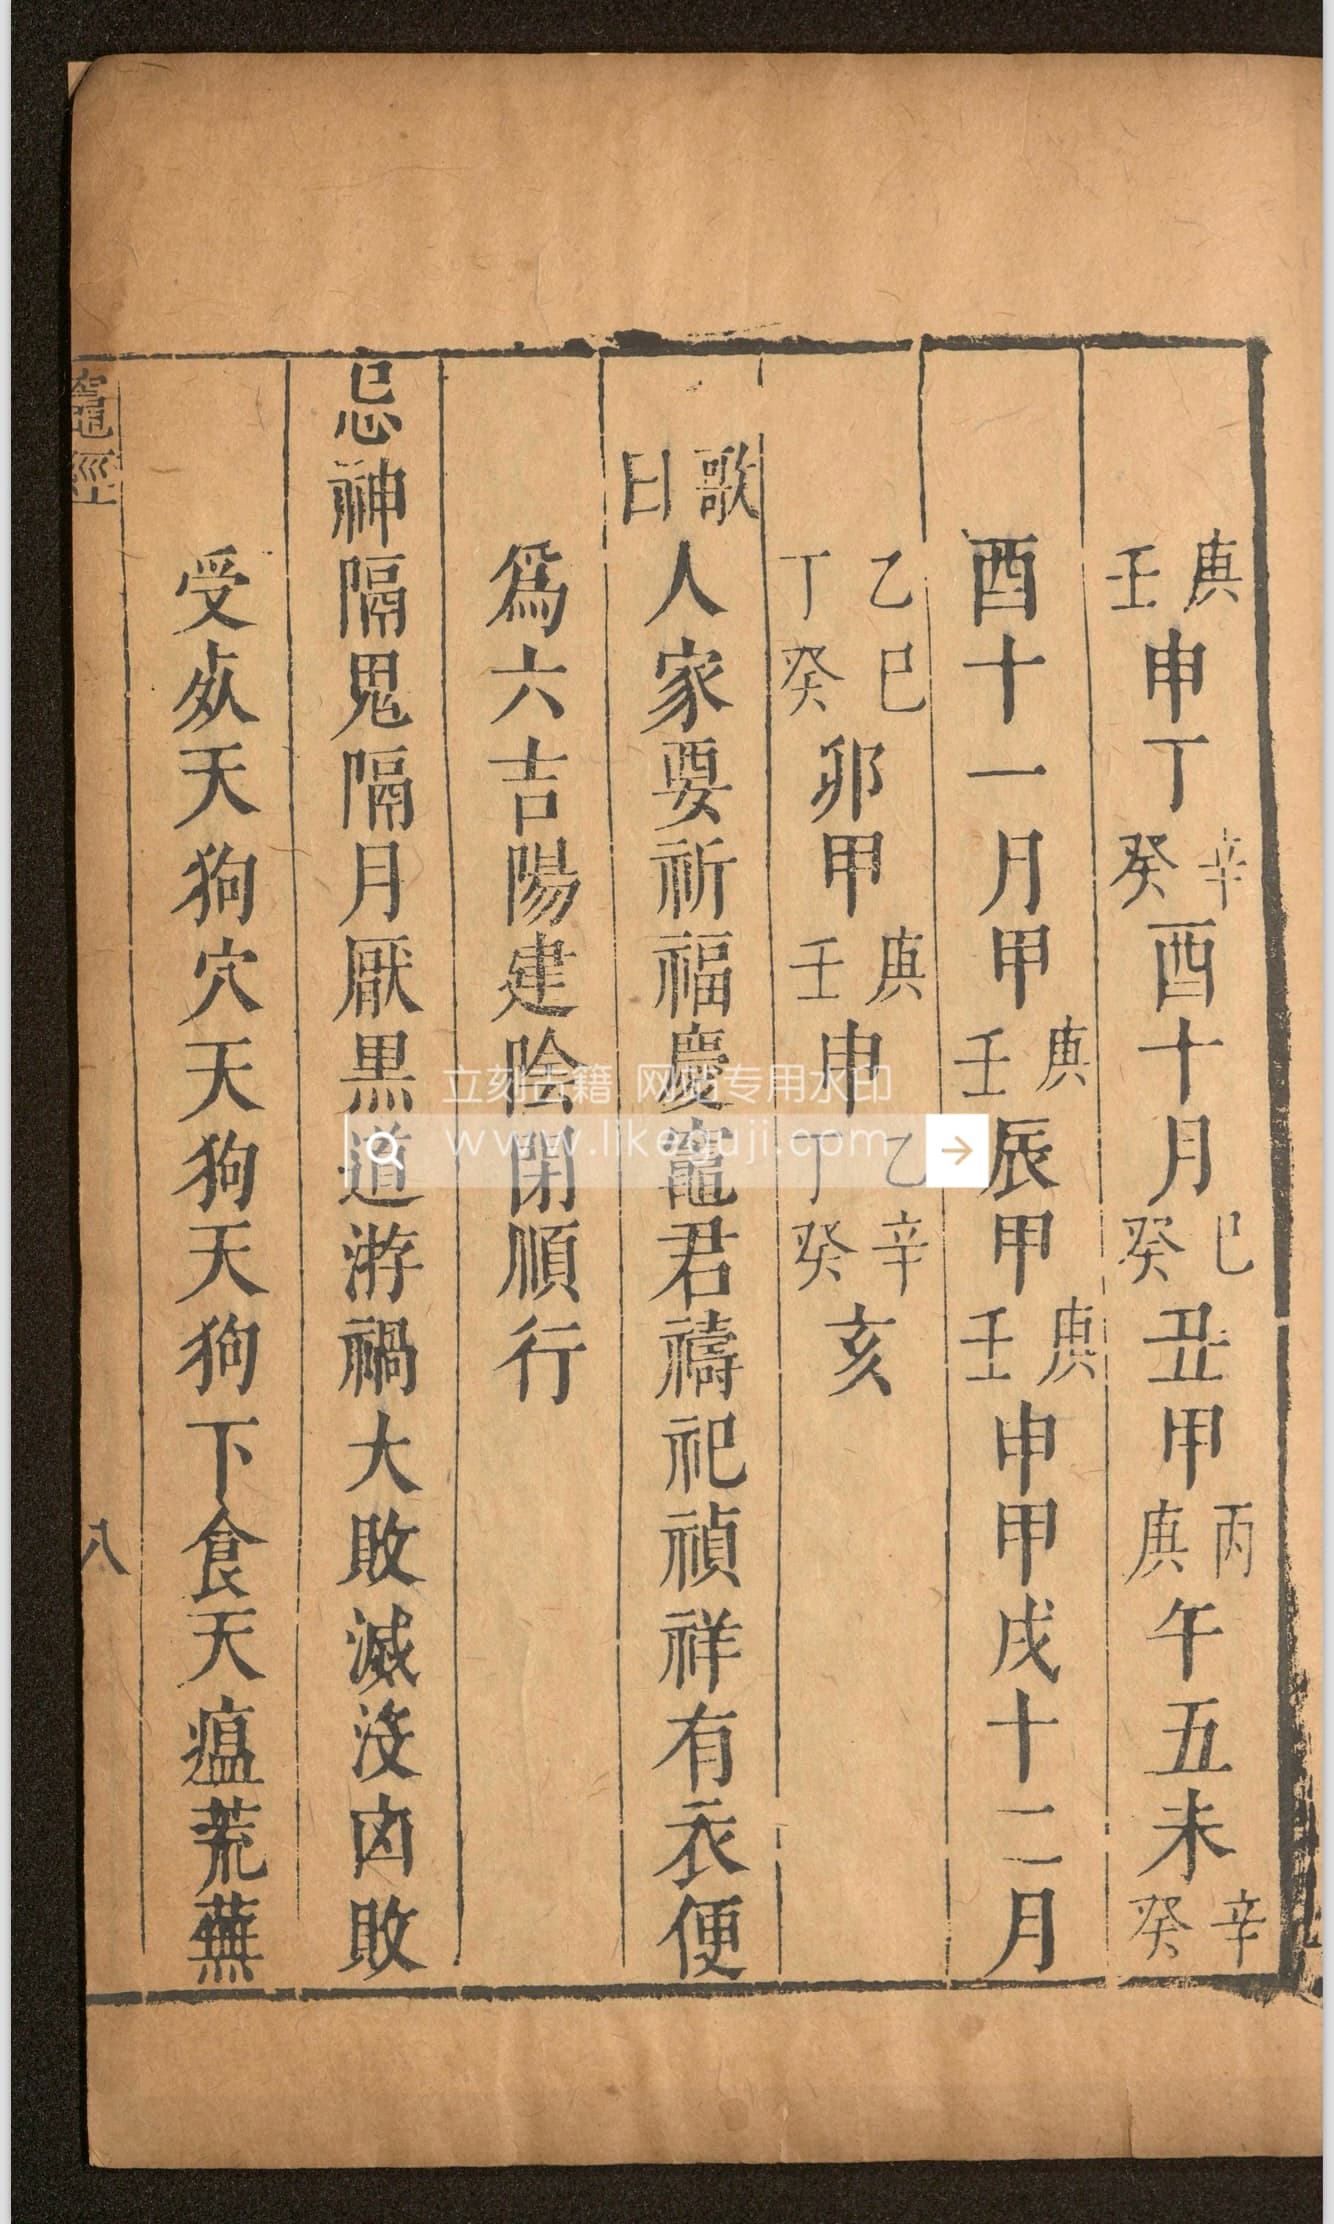 庚壬申丁辛癸酉十月巳癸丑甲丙庚午五未辛癸
酉十一月甲庚壬辰甲庚壬申甲戌十二月
乙巳丁癸卯甲庚壬申乙辛丁癸亥
歌曰人家要祈福慶竈君禱祀禎祥有衣便
爲六吉陽建陰閉順行
忌神隔鬼隔月厭黒道游禍大敗滅沒凶敗
受死天狗穴天狗天狗下食天瘟荒蕪
竈經
八
立刻古籍 网站专用水印
www.likeguji.com